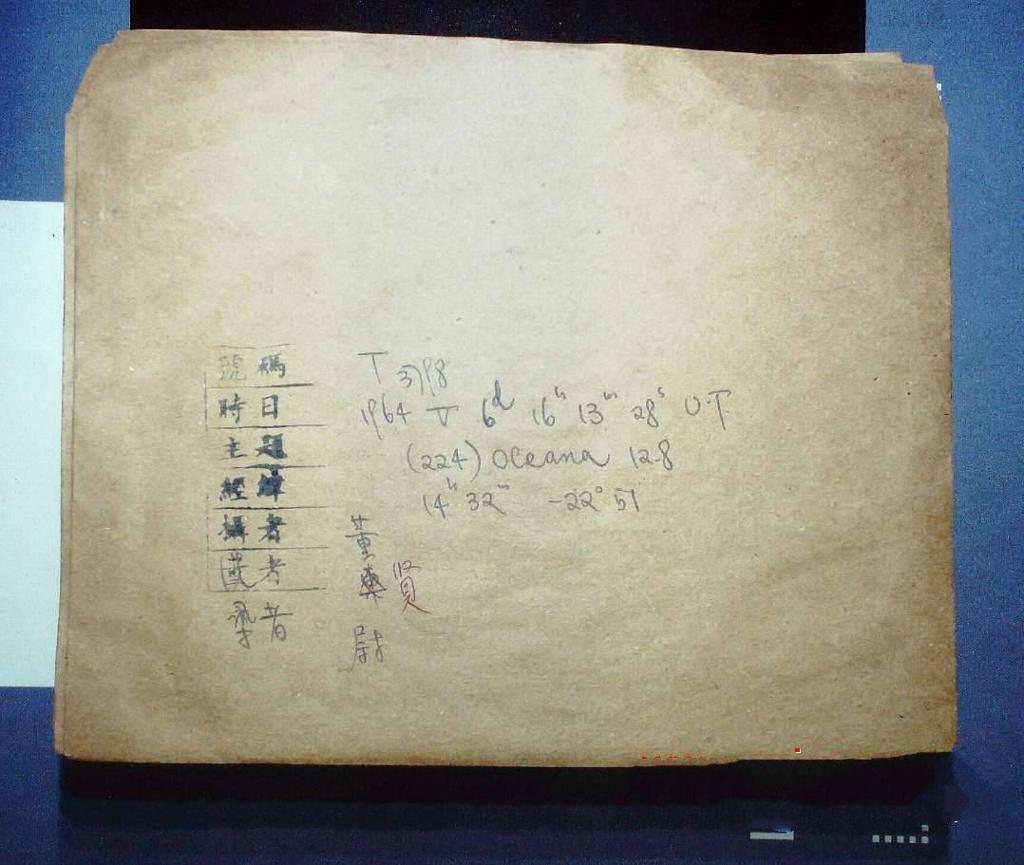 號碼 T 3798
時日 1964 V 6ᵈ 16ʰ 13ᵐ 28ˢ U.T.
主題 (224) Oceana 12.8
經緯 14ʰ 32ᵐ -22° 51
攝者 董
者 賢
者 尉